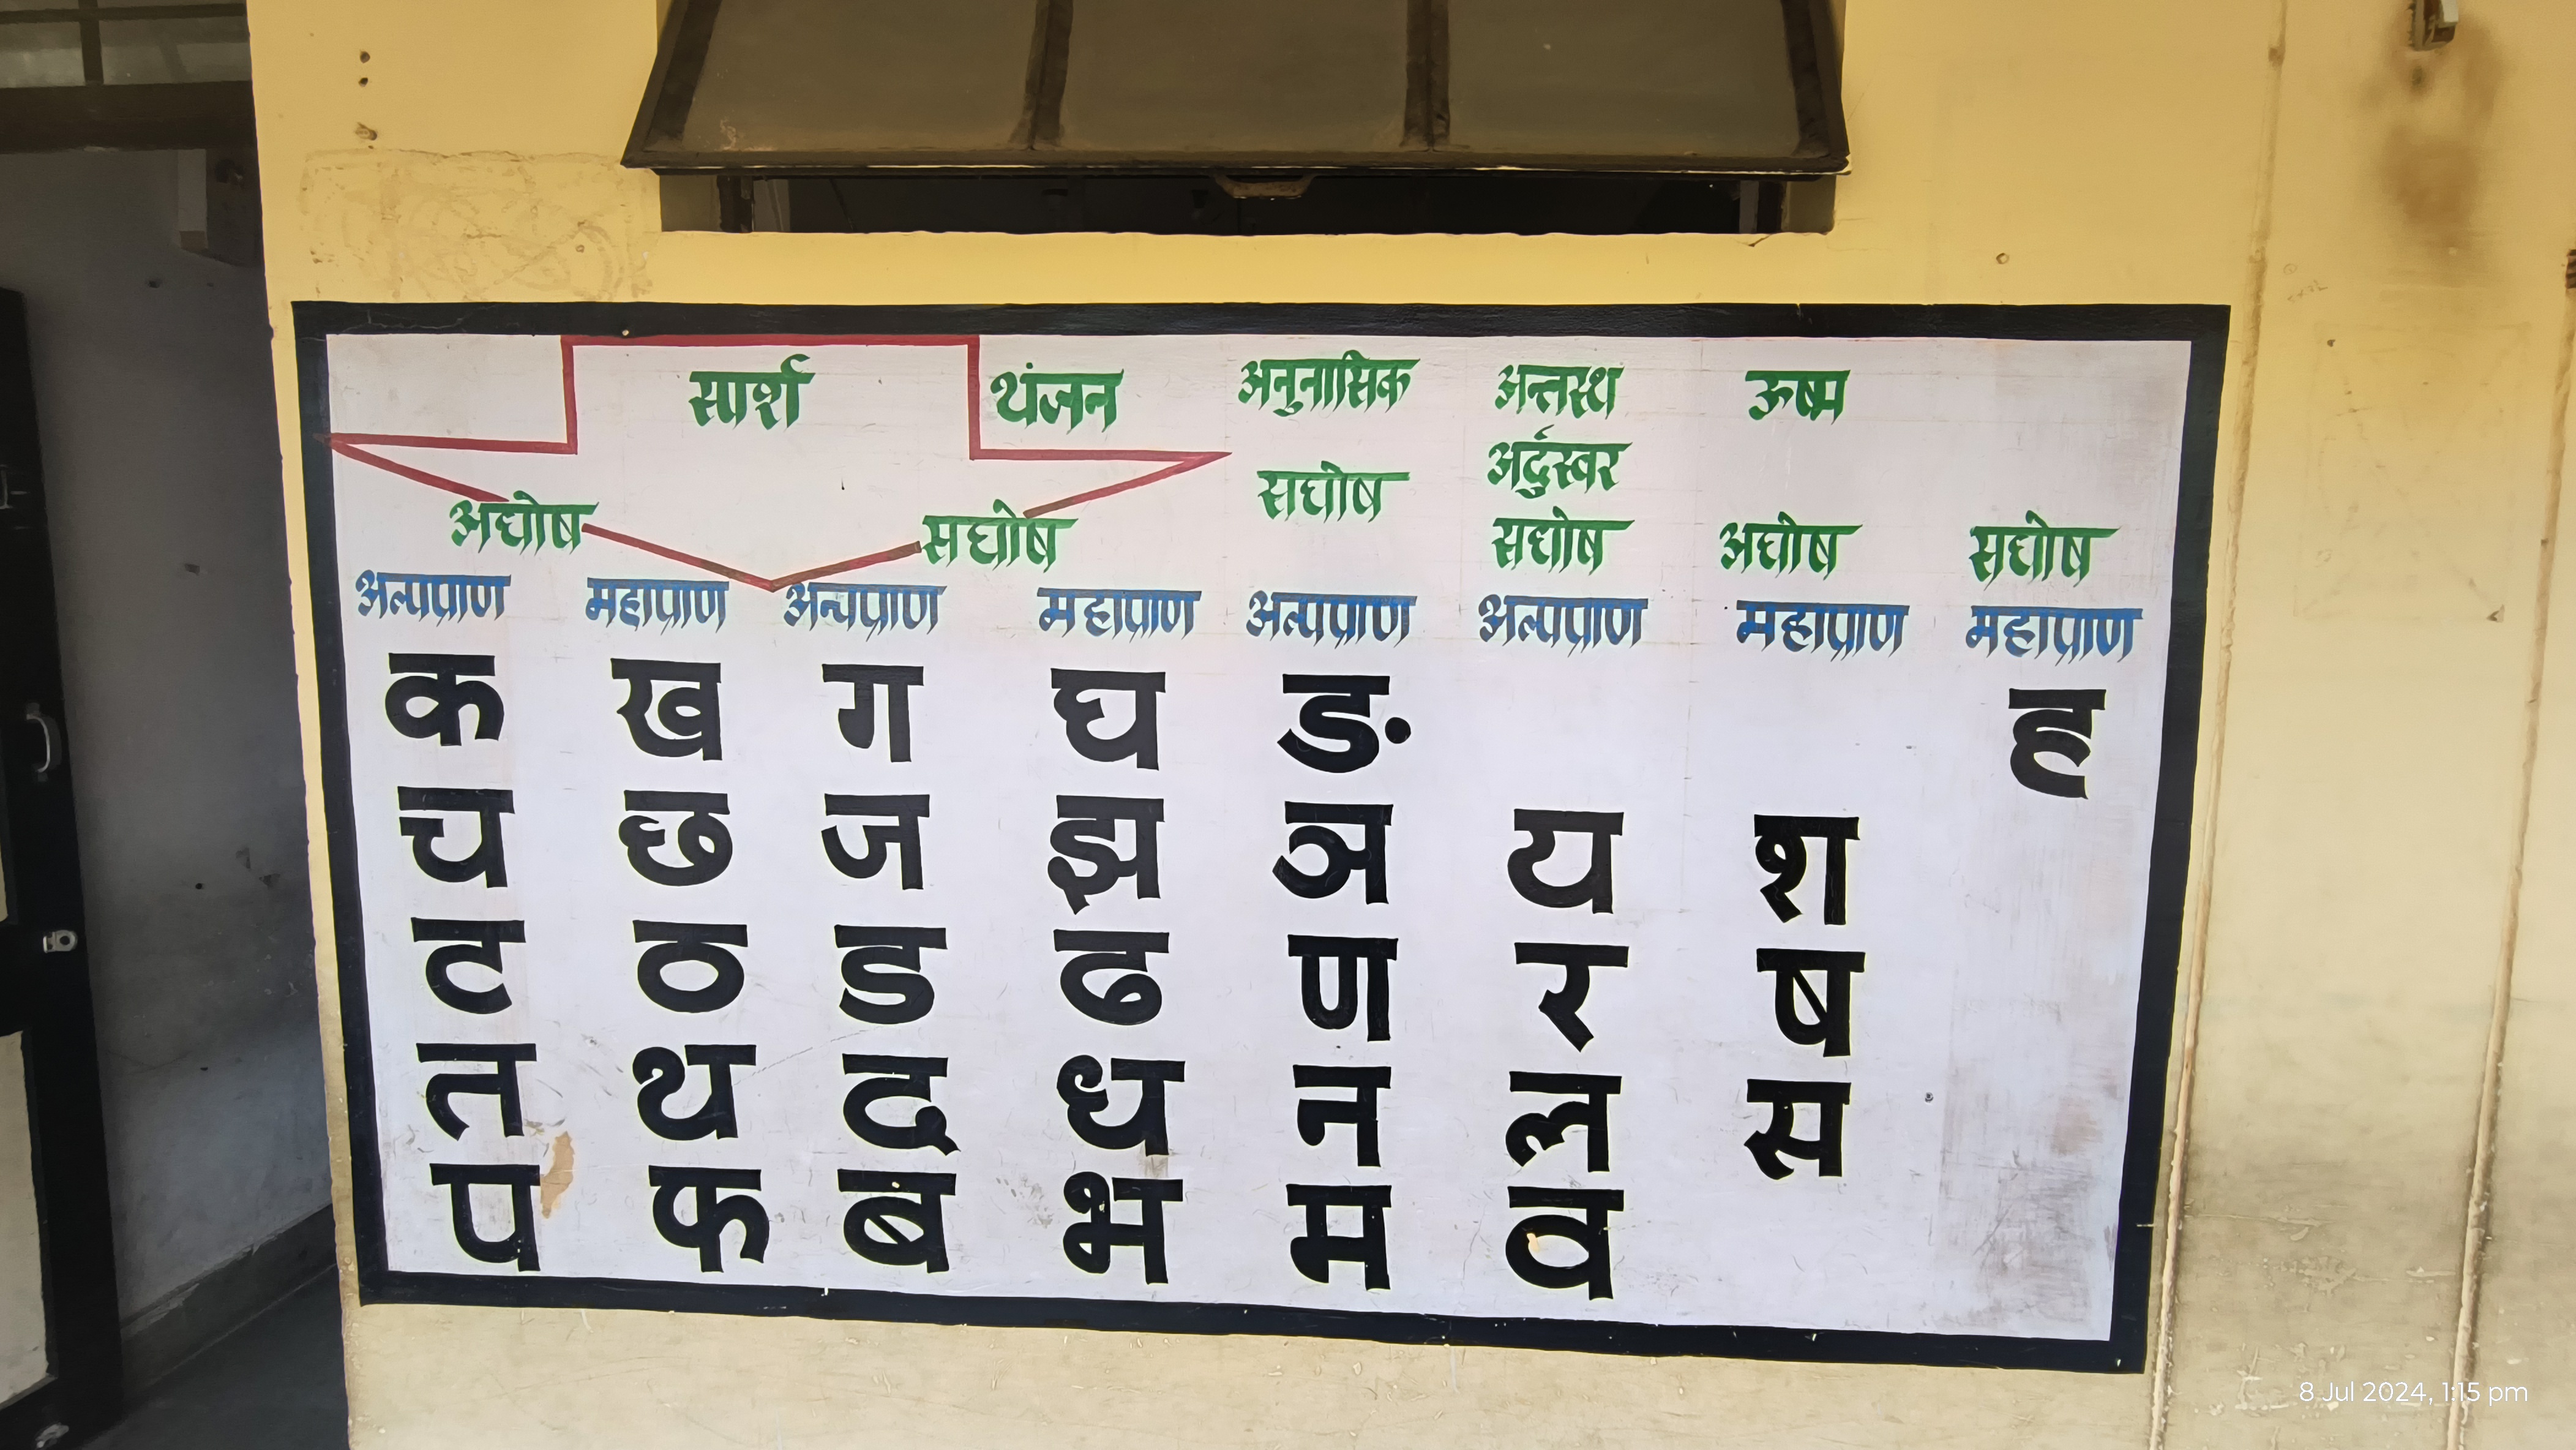 सार्श थंजन अनुनासिक अन्तस्थ ऊष्म
अर्दुस्वर
अघोष सघोष सघोष सघोष अघोष सघोष
अल्पप्राण महाप्राण अल्पप्राण महाप्राण अल्पप्राण अल्पप्राण महाप्राण महाप्राण
क ख ग घ ङ ह
च छ ज झ ञ य श
ट ठ ड ढ ण र ष
त थ द ध न ल स
प फ ब भ म व
8 Jul 2024, 1:15 pm